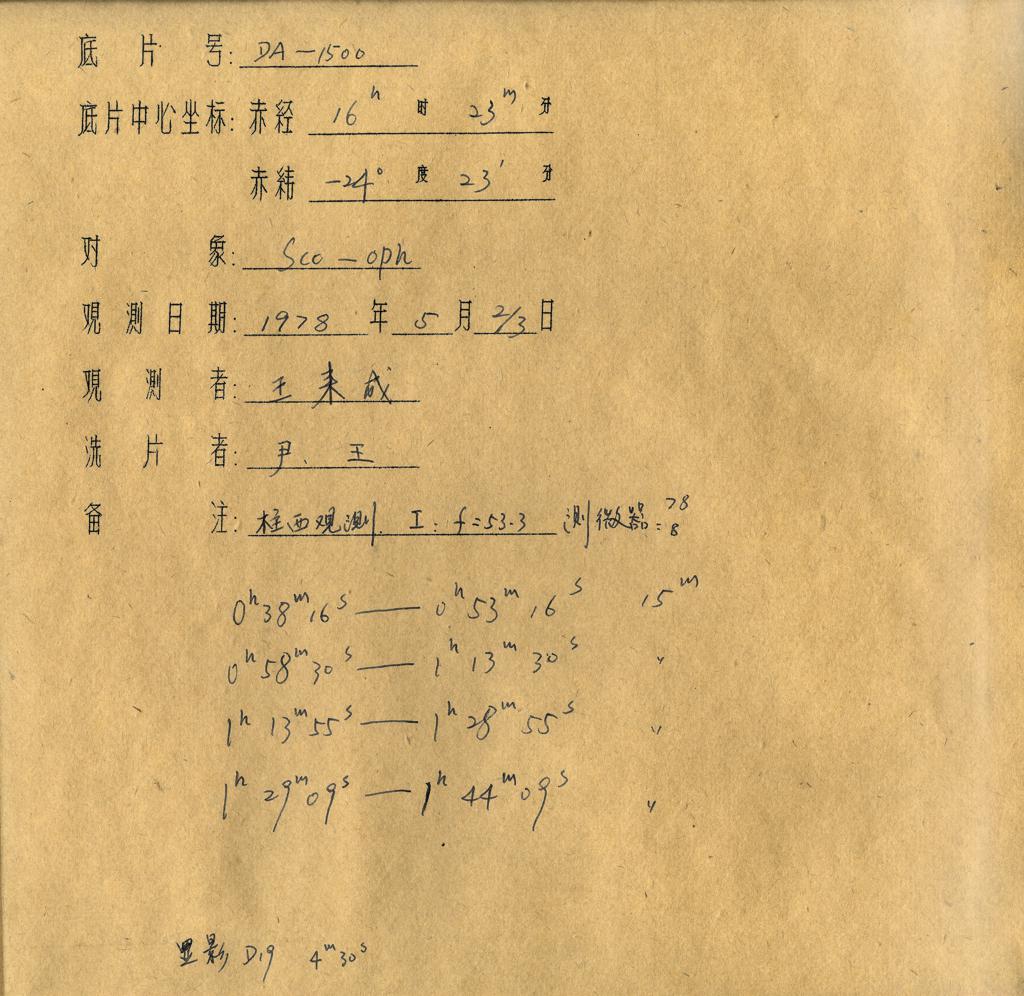 底片号: DA-1500
底片中心坐标: 赤经 16ʰ 时 23ᵐ 分
赤纬 -24° 度 23′ 分
对象: Sco-oph
观测日期: 1978 年 5 月 2/3 日
观测者: 王来成
洗片者: 尹、王
备注: 柱西观测. I: f=53.3 测微器: 78 8
0ʰ38ᵐ16ˢ — 0ʰ53ᵐ16ˢ 15ᵐ
0ʰ58ᵐ30ˢ — 1ʰ13ᵐ30ˢ 〃
1ʰ13ᵐ55ˢ — 1ʰ28ᵐ55ˢ 〃
1ʰ29ᵐ09ˢ — 1ʰ44ᵐ09ˢ 〃
显影 D19 4ᵐ30ˢ